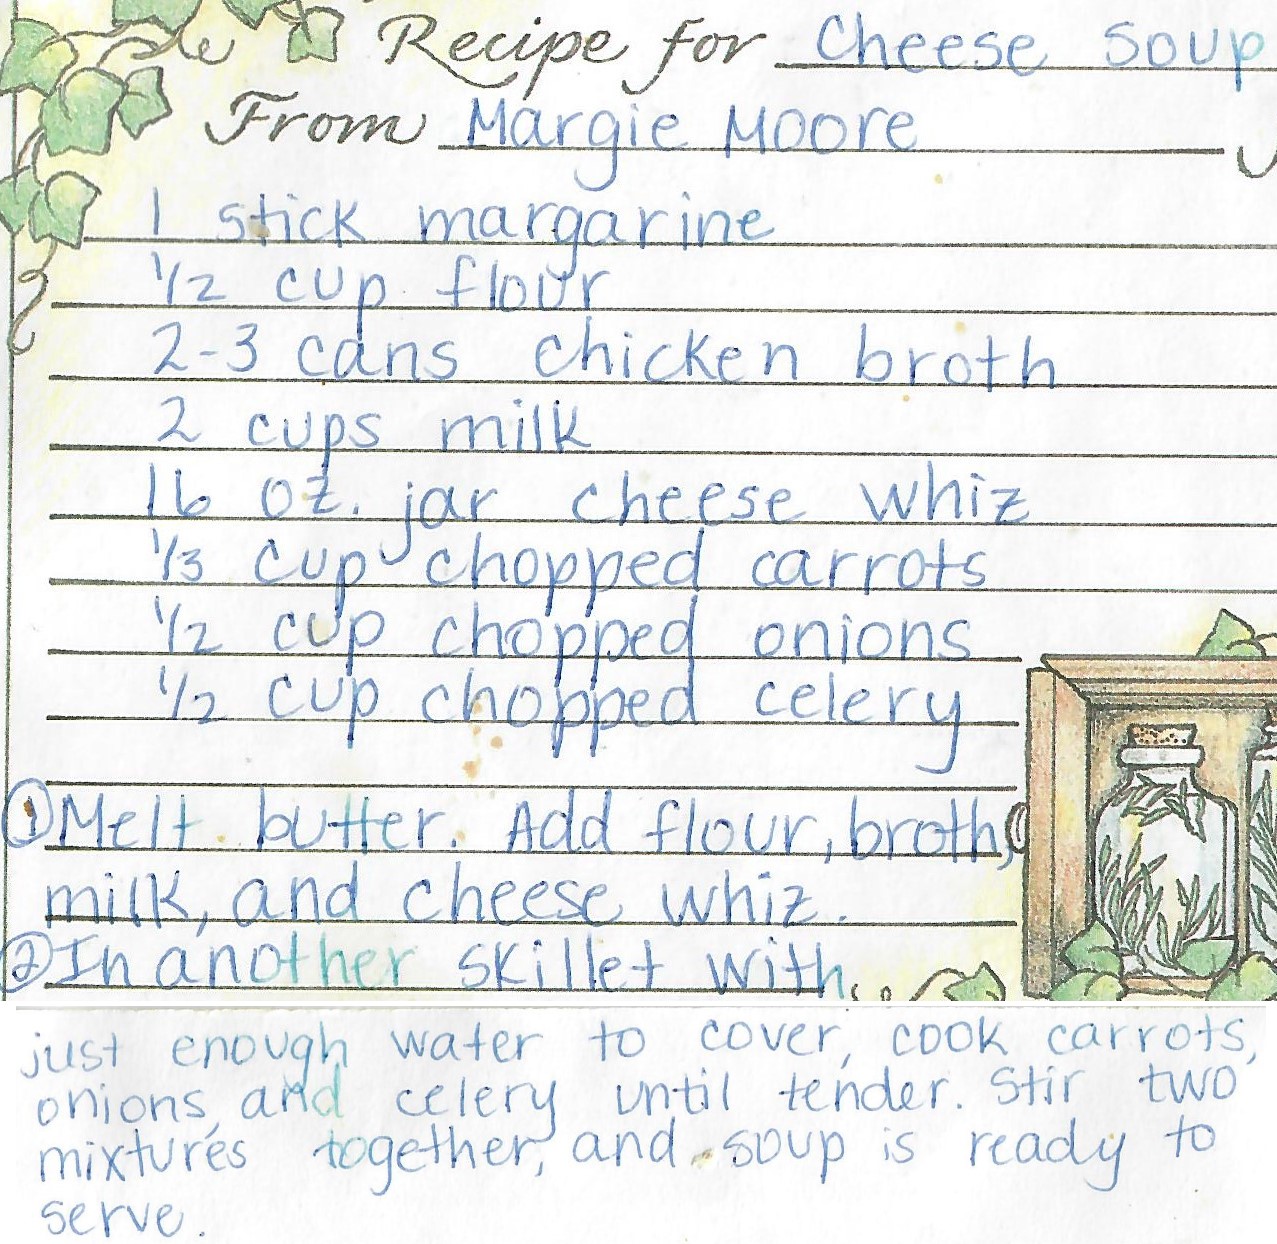 Recipe for Cheese Soup
From Margie Moore
1 stick margarine
1/2 cup flour
2-3 cans chicken broth
2 cups milk
16 oz. jar cheese whiz
1/3 cup chopped carrots
1/2 cup chopped onions
1/2 cup chopped celery
① Melt butter. Add flour, broth,
milk, and cheese whiz.
② In another skillet with
just enough water to cover, cook carrots,
onions, and celery until tender. Stir two
mixtures together, and soup is ready to
serve.